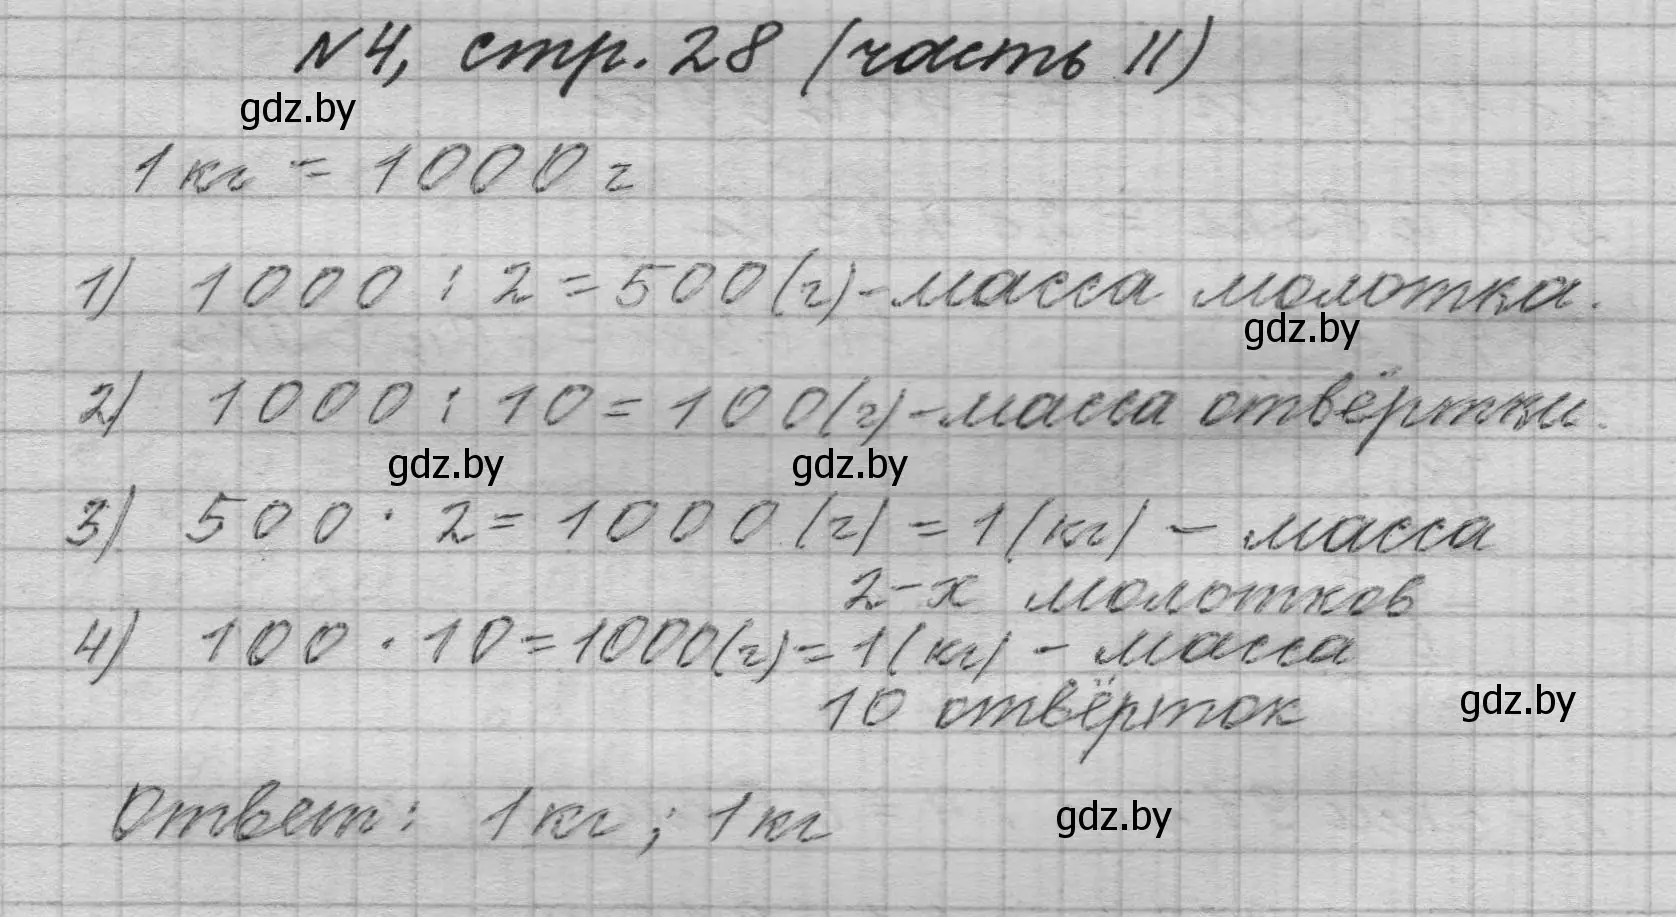 №4, стр. 28 (часть II)
gdz.by
1 кг = 1000 г
1) 1000 : 2 = 500 (г) - масса молотка.
gdz.by
2) 1000 : 10 = 100 (г) - масса отвёртки.
gdz.by gdz.by
3) 500 · 2 = 1000 (г) = 1 (кг) - масса
2-х молотков
4) 100 · 10 = 1000 (г) = 1 (кг) - масса
10 отвёрток
gdz.by
Ответ: 1 кг ; 1 кг
gdz.by